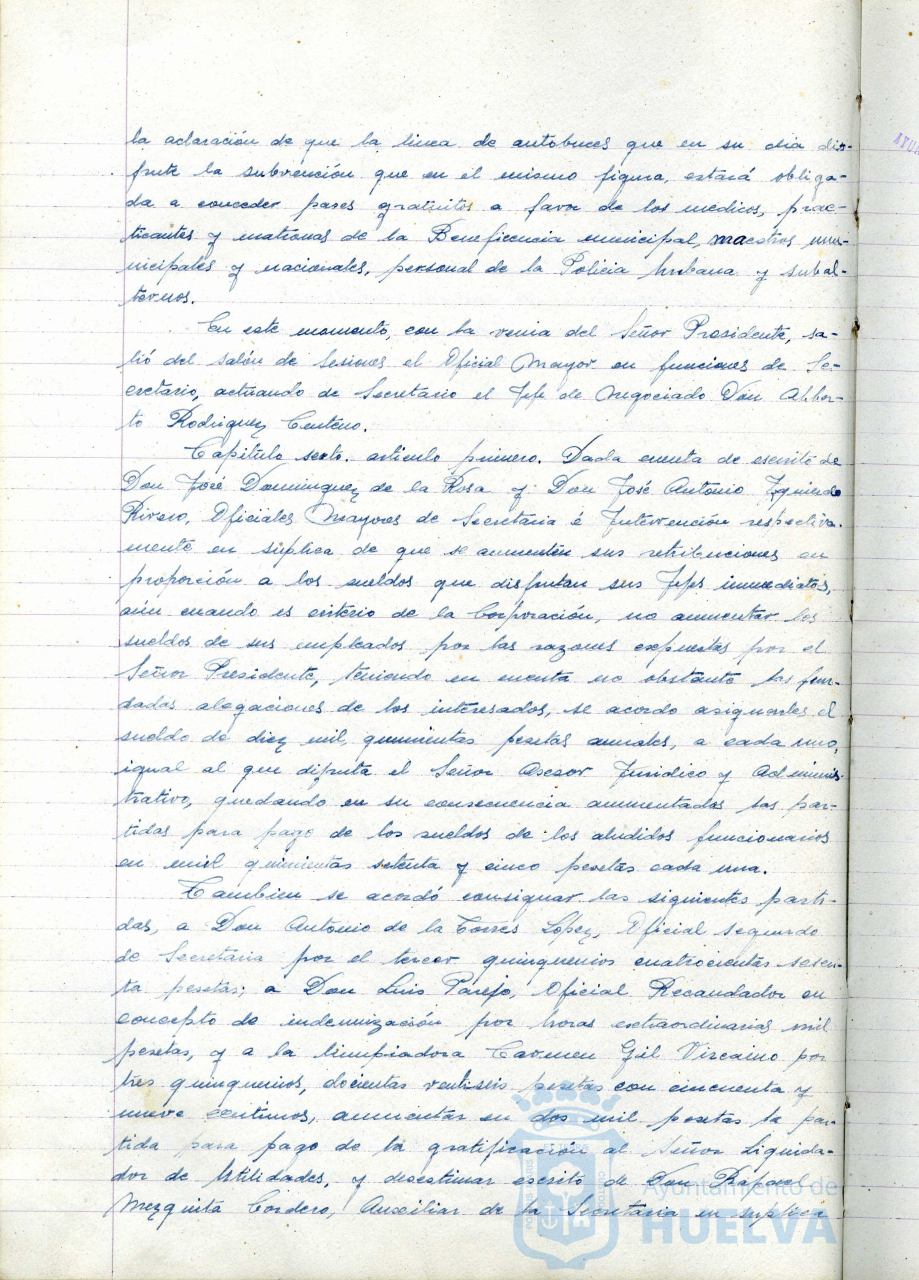 la aclaración de que la linea de autobuces que en su dia dis-
frute la subvención que en el mismo figura, estará obliga-
da a conceder pases gratuitos a favor de los medicos, prac-
ticantes y matronas de la Beneficencia municipal, maestros mu-
nicipales y nacionales, personal de la Policia Urbana y subal-
ternos.
En este momento, con la venia del Señor Presidente, sa-
lió del salón de Sesiones el Oficial Mayor en funciones de Se-
cretario, actuando de Secretario el Jefe de Negociado Don Alber-
to Rodriguez Centeno.
Capitulo sexto. articulo primero. Dada cuenta de escrito de
Don José Dominguez de la Rosa y Don José Antonio Izquierdo
Rivero, Oficiales Mayores de Secretaria é Intervención respectiva-
mente en súplica de que se aumenten sus retribuciones en
proporción a los sueldos que disfrutan sus Jefes inmediatos,
aún cuando es criterio de la Corporación, no aumentar los
sueldos de sus empleados por las razones expuestas por el
Señor Presidente, teniendo en cuenta no obstante las fun-
dadas alegaciones de los interesados, se acordo asignarles el
sueldo de diez mil, quinientas pesetas anuales, a cada uno,
igual al que difruta el Señor Asesor Juridico y Adminis-
trativo, quedando en su consecuencia aumentadas las par-
tidas para pago de los sueldos de los aludidos funcionarios
en mil quinientas setenta y cinco pesetas cada una.
Tambien se acordó consignar las siguientes parti-
das, a Don Antonio de la Torres López, Oficial segundo
de Secretaria por el tercer quinquenios cuatrocientas sesen-
ta pesetas; a Don Luis Parejo, Oficial Recaudador en
concepto de indemnización por horas extraordinarias mil
pesetas, y a la limpiadora Carmen Gil Vizcaino por
tres quinquenios, docientas ventiseis pesetas con cincuenta y
nueve centimos, aumentar en dos mil pesetas la par-
tida para pago de la gratificación al Señor Liquida-
dor de Utilidades, y desestimar escrito de Don Rafael
Mezquita Cordero, Auxiliar de la Secretaria en suplica
Ayuntamiento de
HUELVA